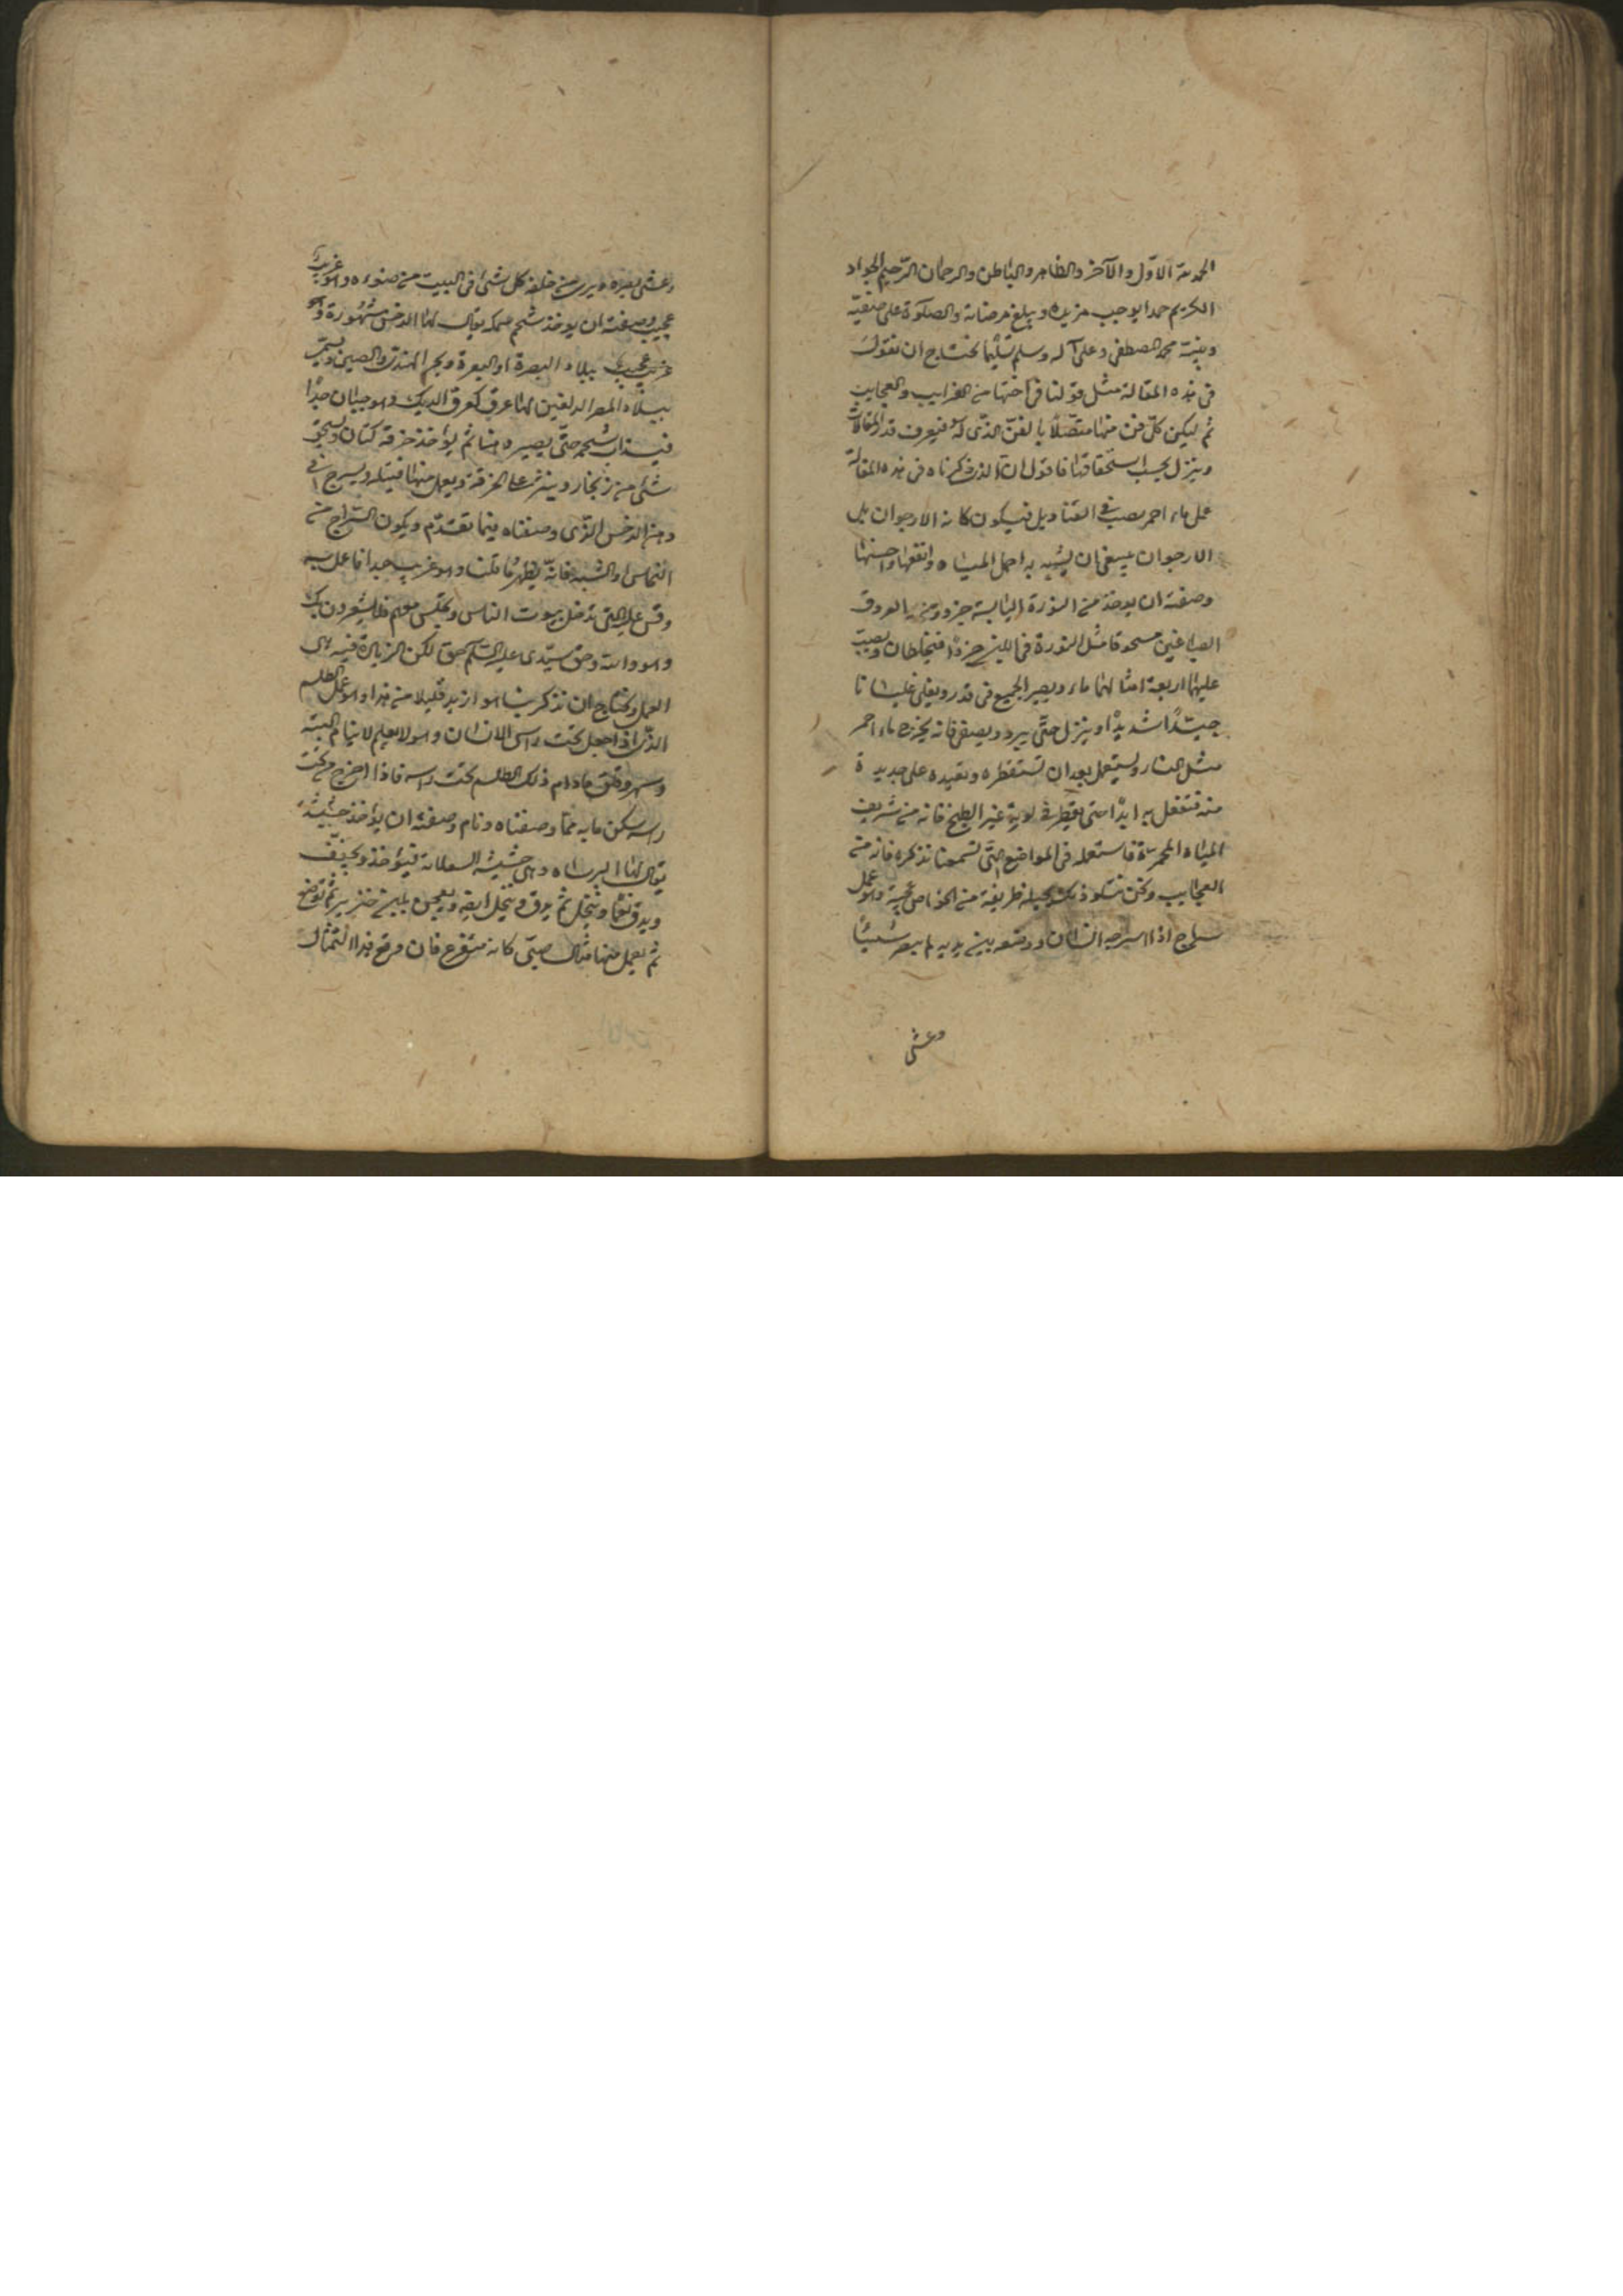 الحمد لله الاوّل والآخر والظاهر والباطن والرحمان الرّحيم الجواد
الكريم حمدا يوجب مزيده ويبلغ مرضاته والصلوة على صفيّه
ونبيّه محمد المصطفى وعلى آله وسلم تسليما نحتاج ان نقول
فى هذه المقالة مثل قولنا فى اختها من الغرايب والعجايب
ثم ليكن كلّ فن منها متصّلاً بالفنّ الذى له فيعرف قدر المقالات
وينزل بحسب استحقاقها فاقول ان الذى ذكرناه فى هذه المقالة
عمل ماء احمر يصب فى القناديل فيكون كانه الارجوان بل
الارجوان ينبغى ان يشبه به اجمل المياه وانقعها واحسنها
وصفته ان يوخذ من النورة اليابسة جزء ومن العروق
الصباغين مسحوقا مثل النورة فى اللين جزءًا فيخلطان ويصب
عليهما اربعة امثالهما ماء ويصير الجميع فى قدر ويغلى غليانا
جيّدًا شديدًا وينزل حتّى يبرد ويصفى فانه يخرج ماء احمر
مثل النار ويستعمل بعد ان تستقطره وتعيده على جديدة
منه تفعل به ابدًا حتى يقطر فى لونه غير الطبخ فانه من شريف
المياه المحمرة فاستعمله فى المواضع التى تسمعنا نذكره فانه من
العجايب ونحن نتلو ذلك بحيلة ظريفة من الخواص عجيبة وهو عمل
سراج اذا اسرجه انسان ووضعه بين يديه لم يبصر شيئًا
وعشى
وعشى بصره ويرى من خلفه كل شئ فى البيت من ضوءه وهو غريب
عجيب وصفته ان يوخذ شحم سمكة يقال لها الدخس مشهورة وهو
غريب عجيب ببلاد البصرة او البعرة وبحر الهند والصين ويسمى
ببلاد المصر الدلفين لها عرف كعرف الديك وهو جبان جدًا
فيذاب شحمه حتّى يصير دهنا ثم يؤخذ خرقة كتان ويسحق
شئ من زنجار وينثر على الخرقة ويعمل منها فتيلة ويسرج فى
دهن الدخس الذّى وصفناه فيما تقدّم ويكون السّراج من
النحاس او الشبه فانّه يظهر ما قلنا وهو غريب جدا فاعمل به
وقس عليه حتى تدخل بيوت الناس وتجلس معهم فلا يشعرون بك
وهو والله وحق سيّدى عليه السّلام حق لكن الزيادة فيه
العمل ونحتاج ان نذكر بما هو ازيد قليلا من هذا وهو عمل الطلسم
الذّى اذا جعل تحت راس الانسان وهو لا يعلم لا ينام البتة
وسهر وقلق مادام ذلك الطلسم تحت راسه فاذا اخرج من تحت
راسه سكن ما به ممّا وصفناه ونام وصفته ان يؤخذ حشيشة
يقال لها البرشاه وهى حشيشة السعلانة فيؤخذ ويجفّف
ويدق نعمًا وينخل ثم يدق وينخل ايضا ويعجن بلبن خنزير ثم توضع
ثم يعمل منها مثال صبّى كانه متفزع فان وضع هذا التمثال